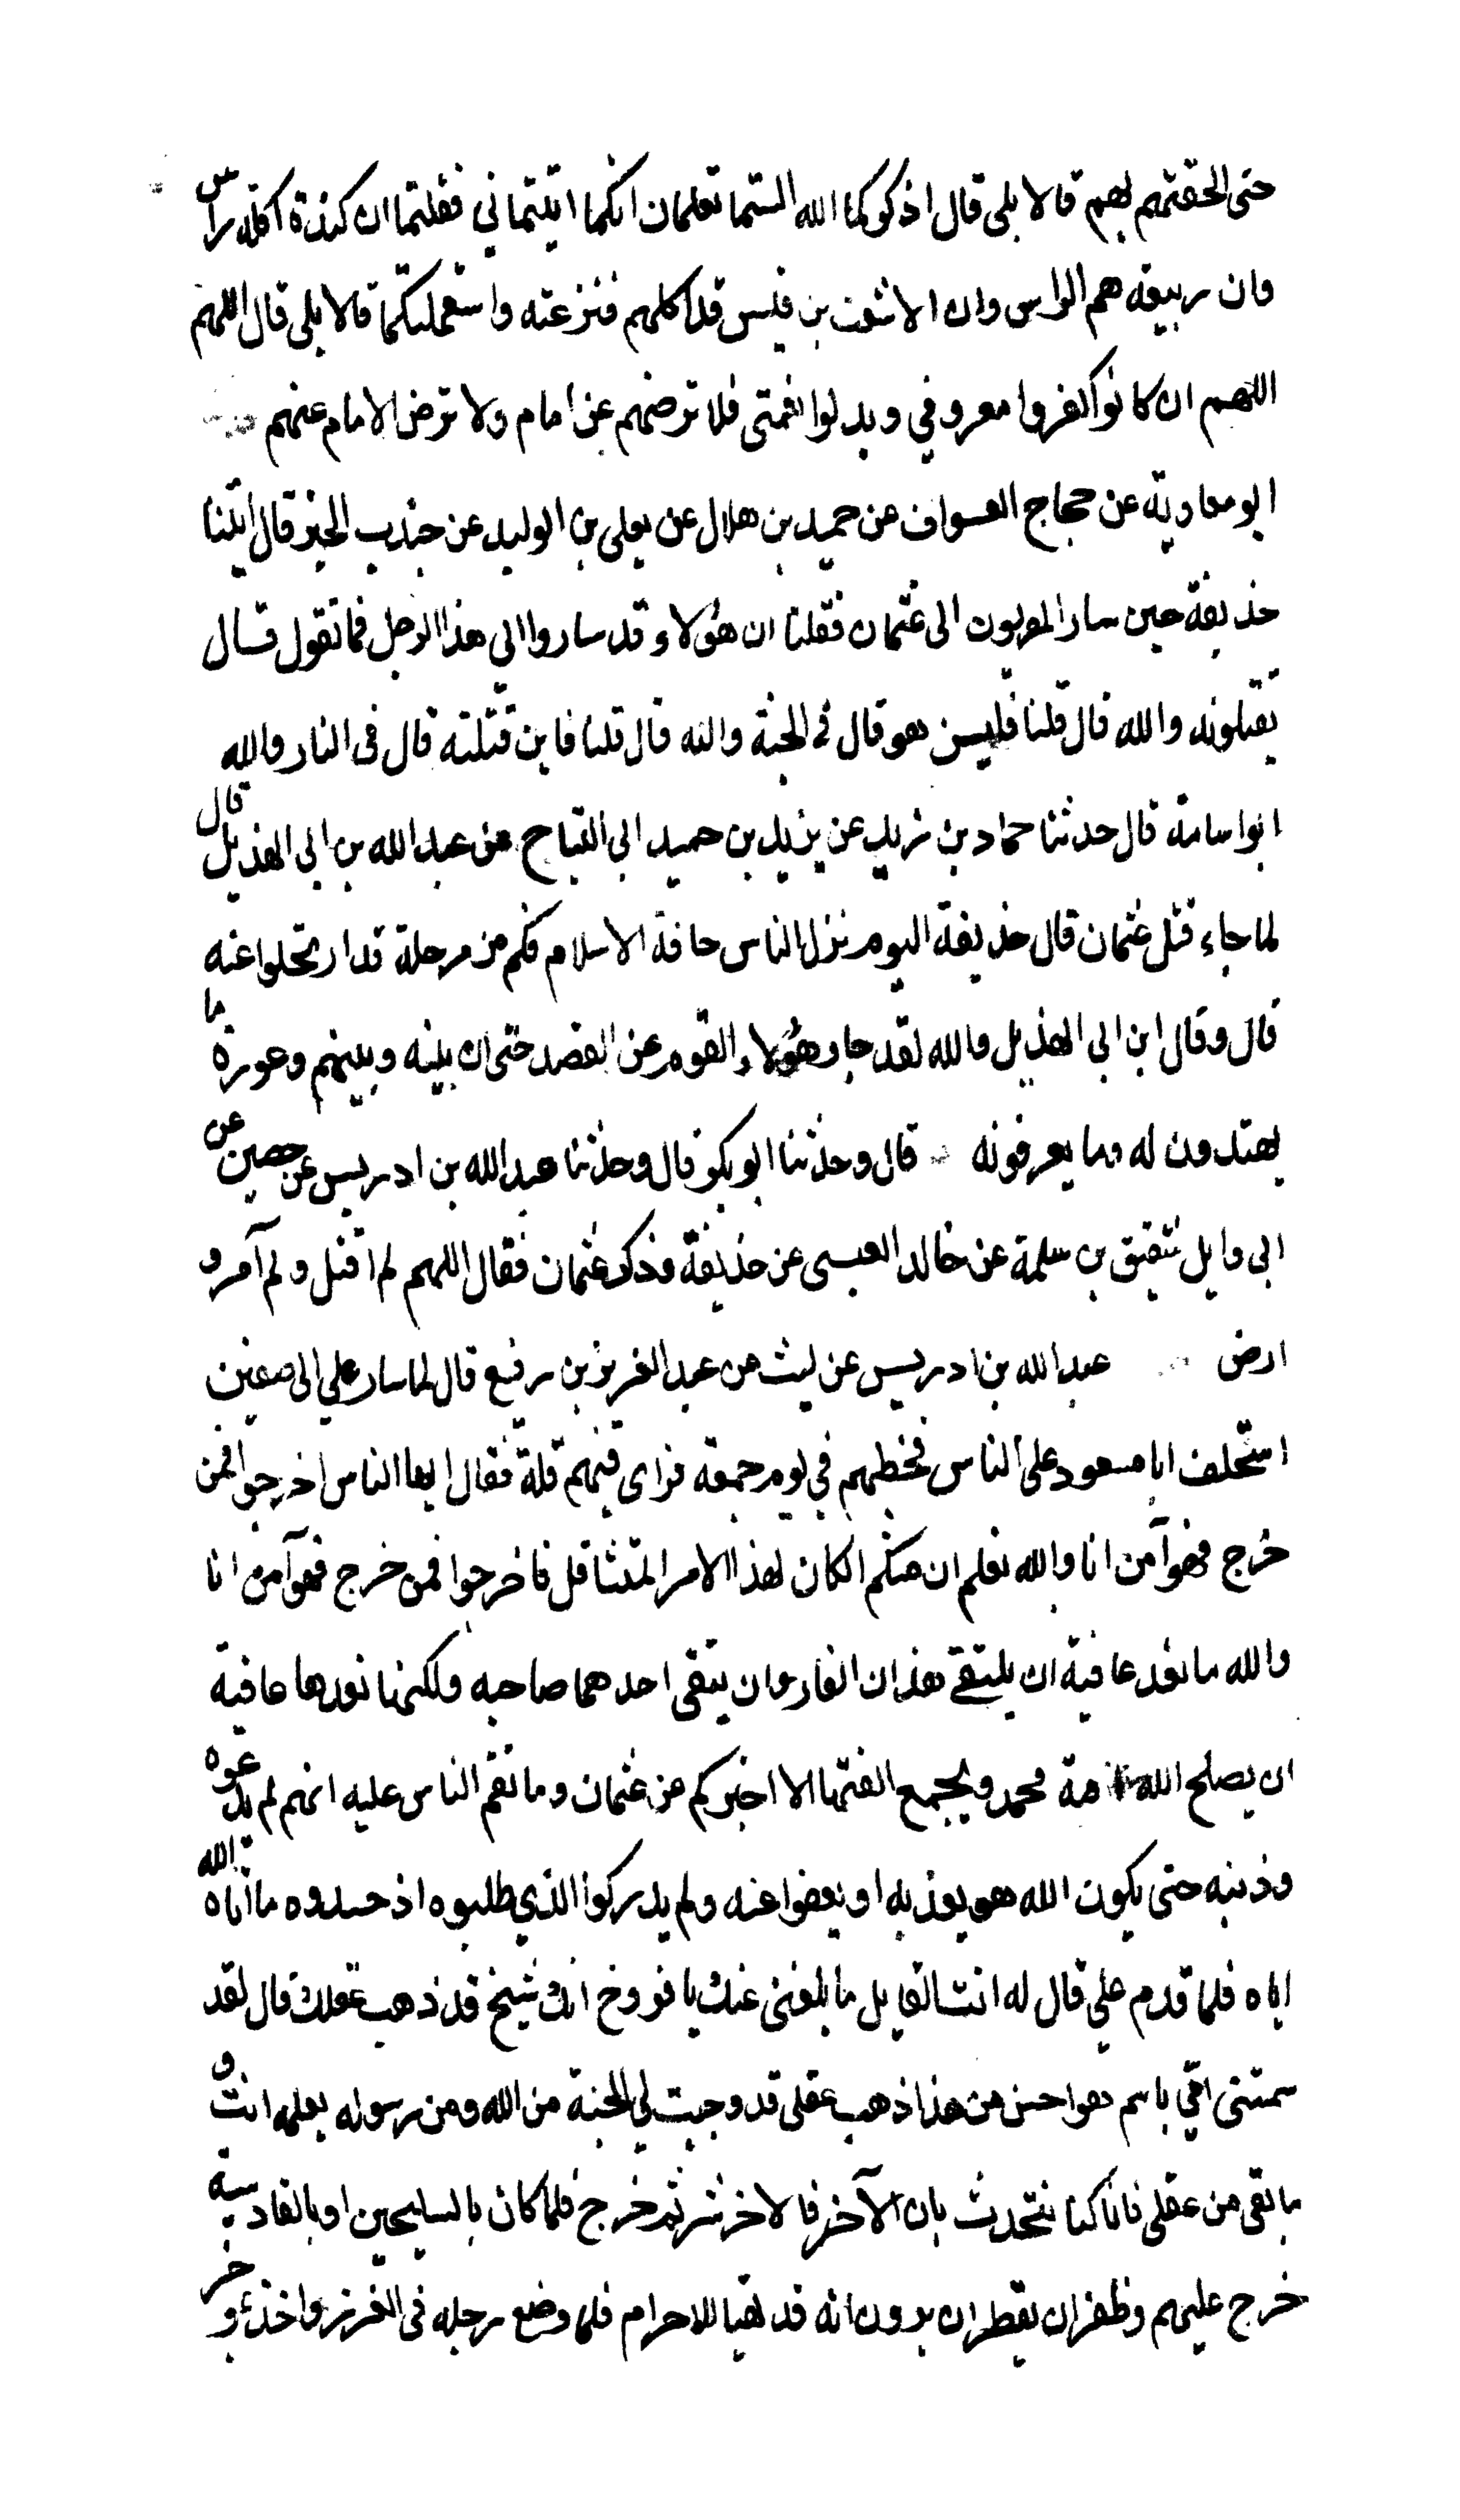 حتى الحقتهم بهم قالا بلى قال اذكركما الله الستما تعلمان انكما اتيتماني فقلتما ان كندة اكلة راس
وان ربيعة هم الراس وان الاشعث بن قيس قد اكلهم فنزعته واستعملتكما قالا بلى قال اللهم
اللهم ان كانوا كفروا معروفي وبدلوا نعمتي فلا ترضهم عن امام ولا ترض الامام عنهم
ابو معاوية عن حجاج الصواف عن حميد بن هلال عن يعلى بن الوليد عن جندب الخير قال اتينا
حذيفة حين سار المصريون الى عثمان فقلنا ان هؤلاء قد ساروا الى هذا الرجل فما تقول قال
يقتلونه والله قال قلنا فليس هو قال في الجنة والله قال قلنا فاين قتلته قال في النار والله
ابو اسامة قال حدثنا حماد بن زيد عن يزيد بن حميد ابي التياح عن عبد الله بن ابي الهذيل قال
لما جاء قتل عثمان قال حذيفة اليوم نزل الناس حافة الاسلام فكم من مرحلة قد ارتحلوا عنه
قال وقال ابن ابي الهذيل والله لقد جار هؤلاء القوم عن القصد حتى ان بينه وبينهم وعورة ما
يهتدون له وما يعرفونه قال وحدثنا ابو بكر قال وحدثنا عبد الله بن ادريس عن حصين عن
ابي وايل شقيق بن سلمة عن خالد العبسي عن حذيفة وذكر عثمان فقال اللهم لم اقتل ولم آمر و
ارض عبد الله بن ادريس عن ليث عن عبد العزيز بن رفيع قال لما سار علي الى صفين
استخلف ابا مسعود على الناس فخطبهم في يوم جمعة فراى فيهم قلة فقال ايها الناس اخرجوا فمن
خرج فهو آمن انا والله نعلم ان منكم الكان لهذا الامر المتثاقل فاخرجوا فمن خرج فهو آمن انا
والله ما نعد عافية ان يلتقي هذان الغاران يتقى احدهما صاحبه ولكنها نعدها عافية
ان يصلح الله امة محمد ويجمع الفتها الا اخبركم عن عثمان وما نقم الناس عليه انهم لم يدعوه
وذنبه حتى يكون الله هو يعذبه او يعفوا عنه ولم يدركوا الذي طلبوه اذ حسدوه ما اتاه الله
اياه فلما قدم علي قال له انت القايل ما بلغني عنك يا فروخ انك شيخ قد ذهب عقلك قال لقد
سمتنى امي باسم هو احسن من هذا ذهب عقلى قد وجبت لي الجنة من الله ومن رسوله يعلمه انت و
ما بقى من عقلى فانا كنا نتحدث بان الآخر فالاخر شر ثم خرج فلما كان بالسليحين او بالقادسية
خرج عليهم وظفران يقطران يرون انه قد تهيا للاحرام فلما وضع رجله في الغرز واخذ بموخر